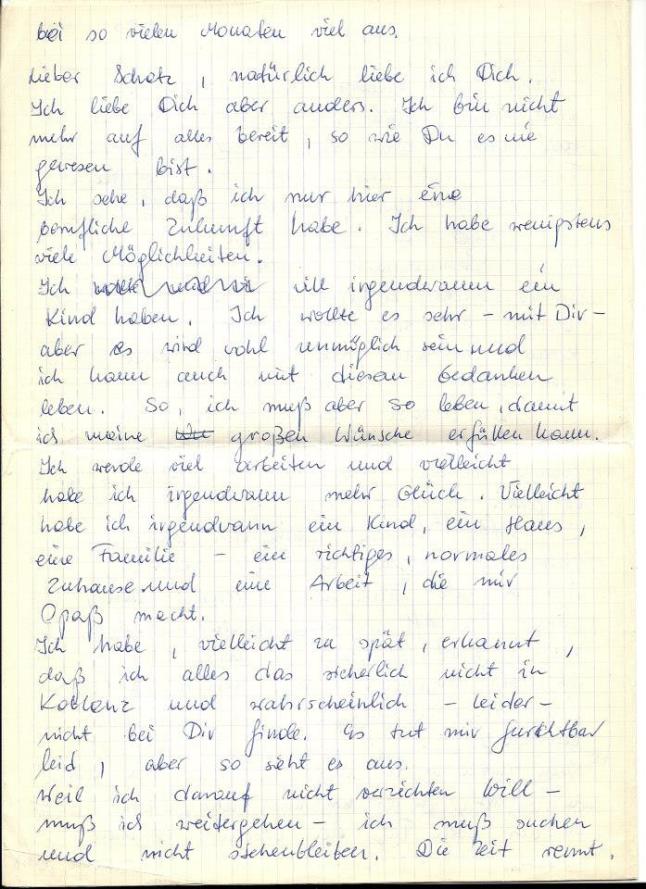 bei so vielen Monaten viel aus.
Lieber Schatz, natürlich liebe ich Dich.
Ich liebe Dich aber anders. Ich bin nicht
mehr auf alles bereit, so wie Du es nie
gewesen bist.
Ich sehe, daß ich nur hier eine
berufliche Zukunft habe. Ich habe wenigstens
viele Möglichkeiten.
Ich will irgendwann ein
Kind haben. Ich wollte es sehr – mit Dir –
aber es wird wohl unmöglich sein und
ich kann auch mit diesem Gedanken
leben. So, ich muß aber so leben, damit
ich meine großen Wünsche erfüllen kann.
Ich werde viel arbeiten und vielleicht
habe ich irgendwann mehr Glück. Vielleicht
habe ich irgendwann ein Kind, ein Haus,
eine Familie – ein richtiges, normales
Zuhause und eine Arbeit, die mir
Spaß macht.
Ich habe, vielleicht zu spät, erkannt,
daß ich alles das sicherlich nicht in
Koblenz und wahrscheinlich – leider –
nicht bei Dir finde. Es tut mir furchtbar
leid, aber so sieht es aus.
Weil ich darauf nicht verzichten will –
muß ich weitergehen – ich muß suchen
und nicht stehenbleiben. Die Zeit rennt.